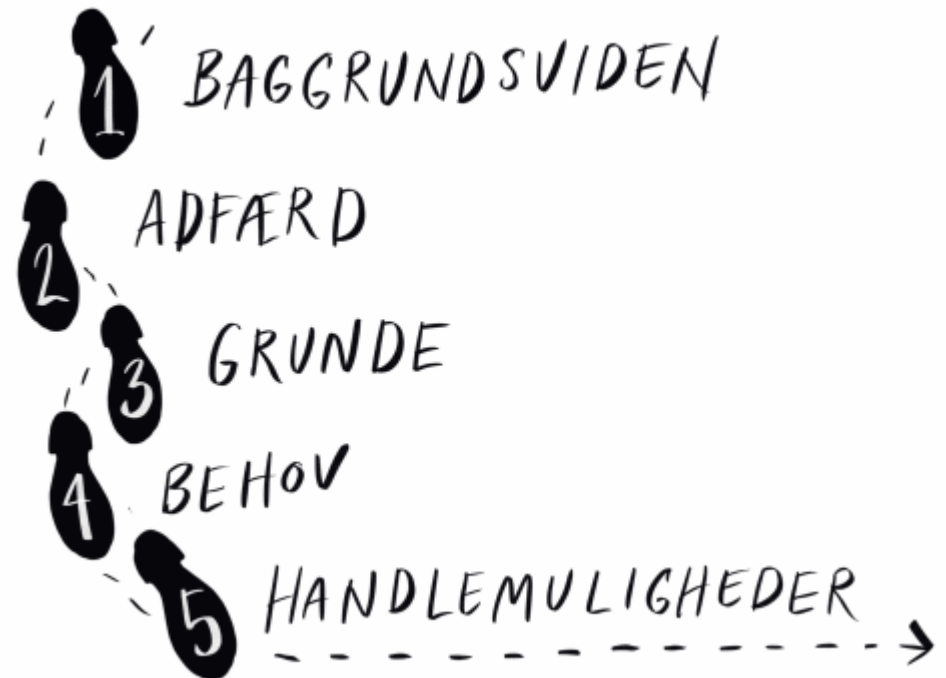 1 BAGGRUNDSVIDEN
2 ADFÆRD
3 GRUNDE
4 BEHOV
5 HANDLEMULIGHEDER